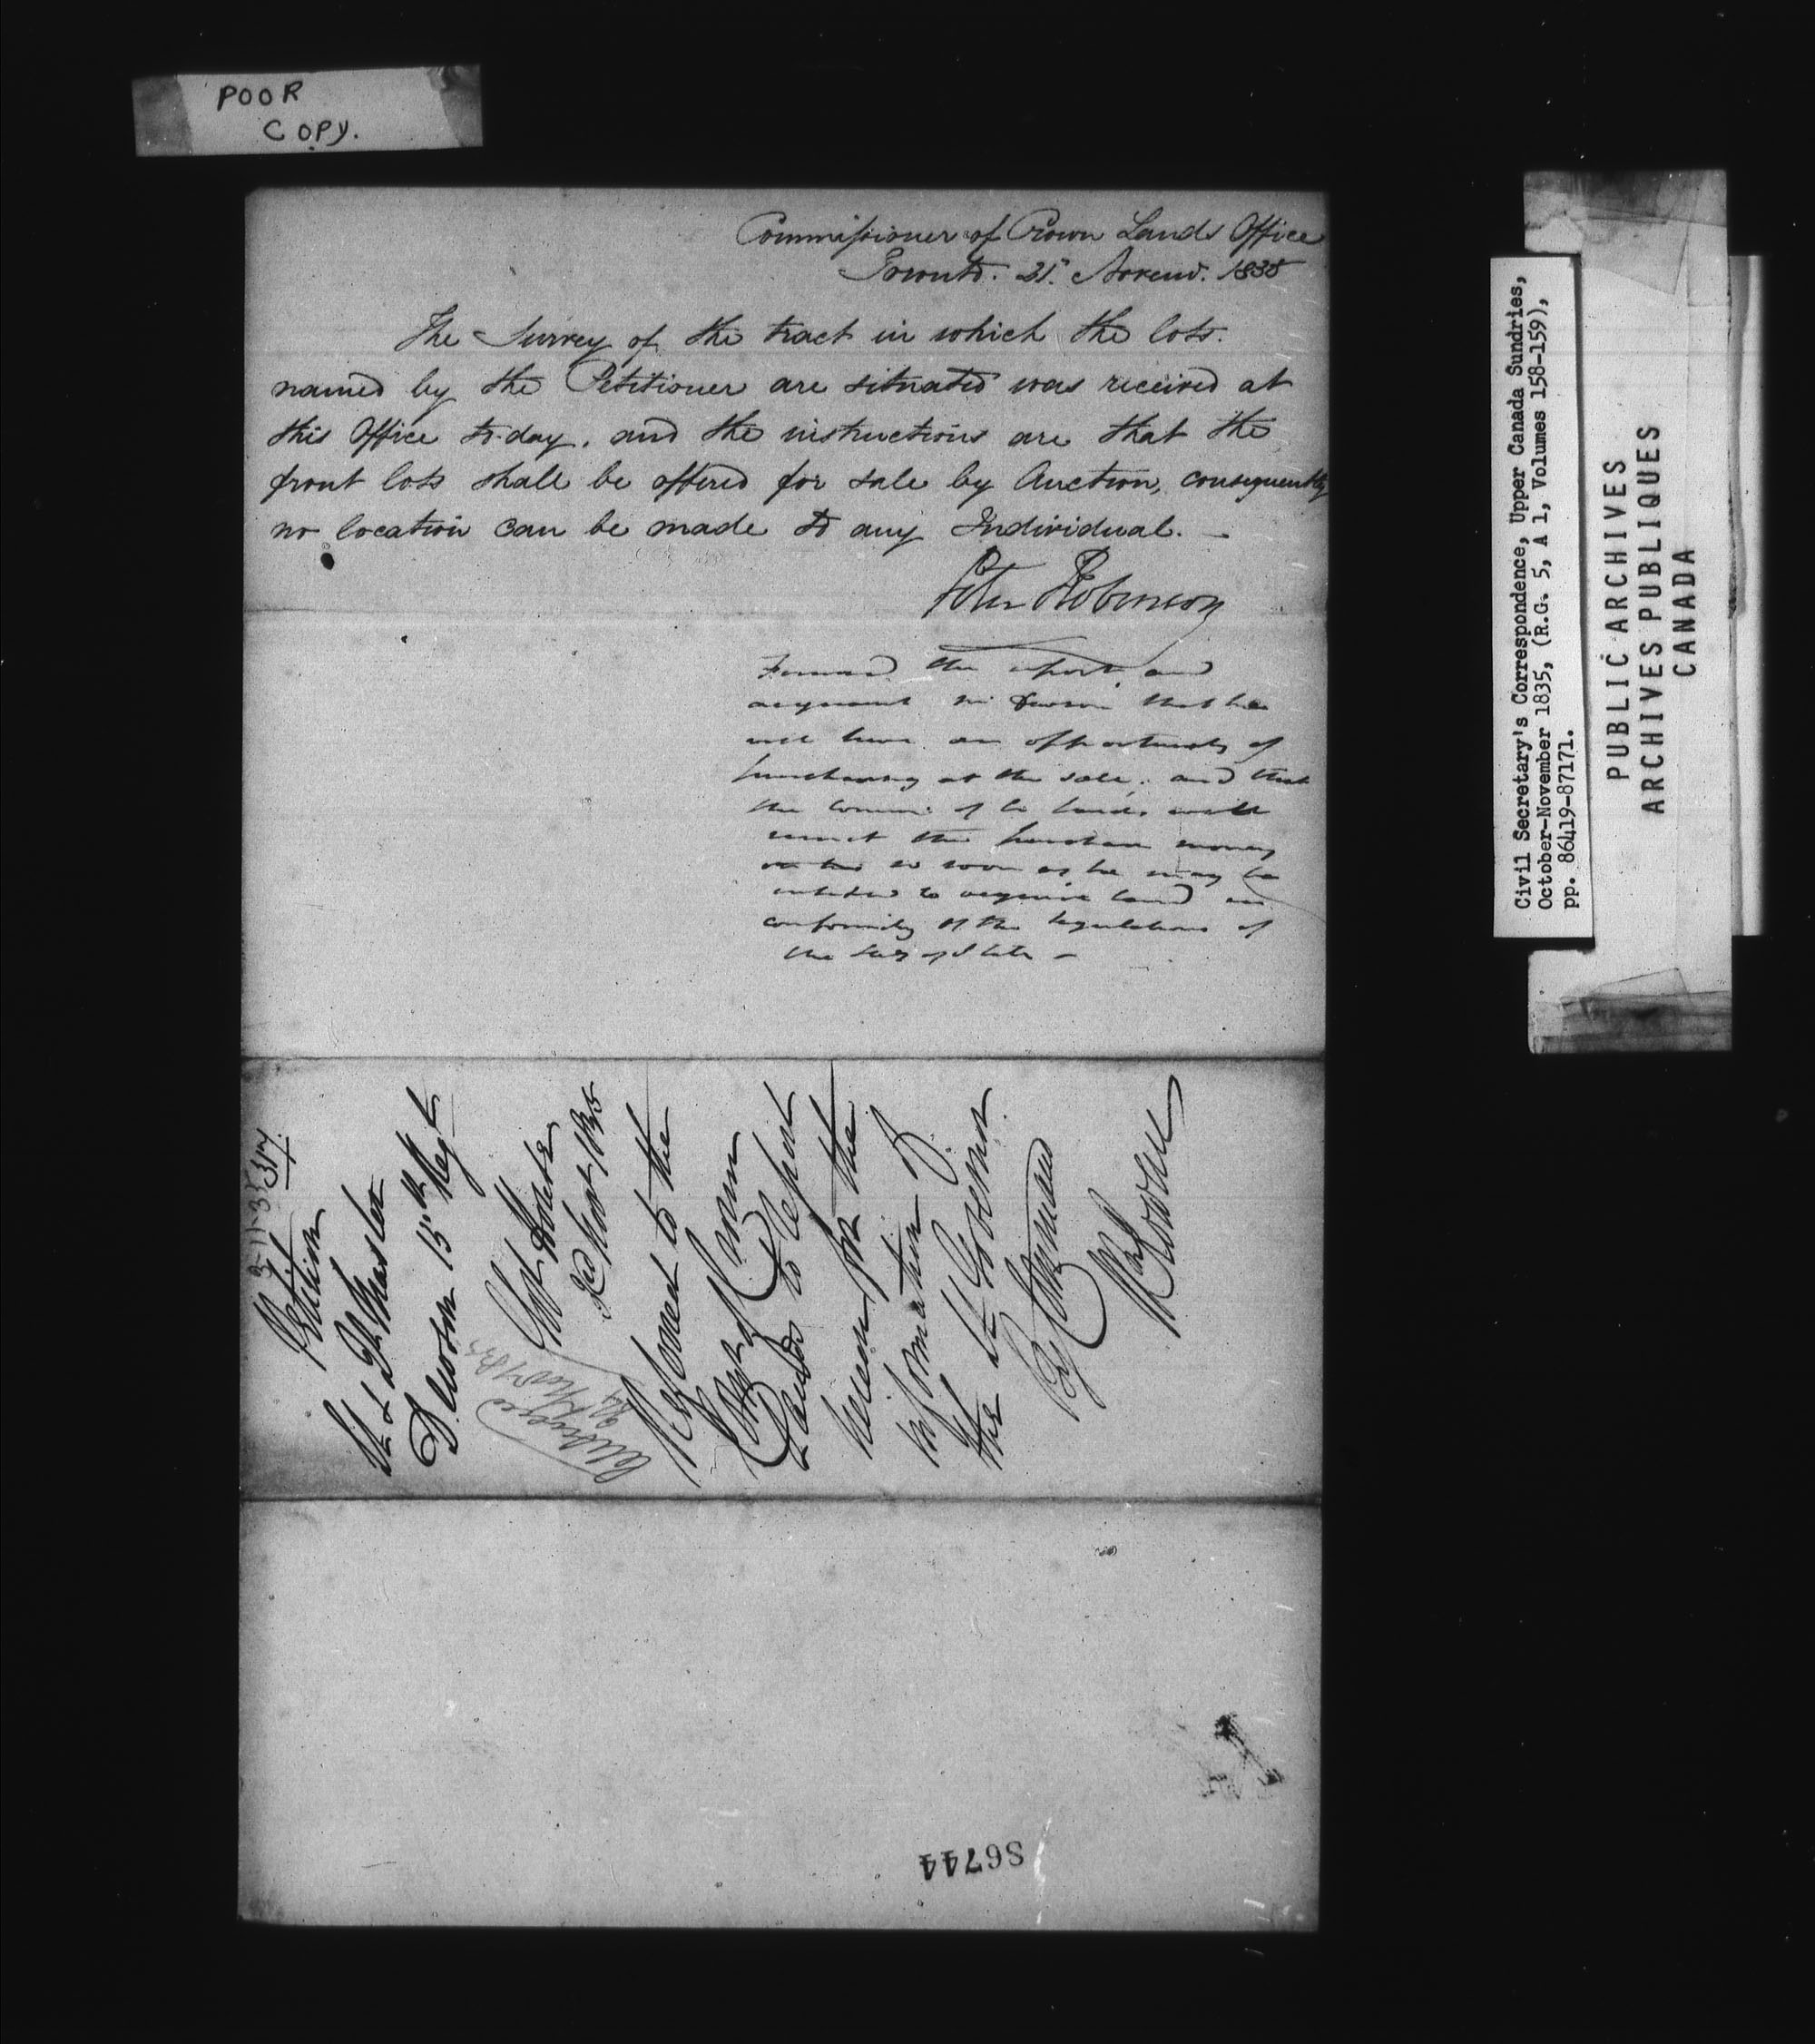 POOR
COPY.
Commissioner of Crown Lands Office
Toronto. 1835
The Survey of the tract in which the lots.
named by the Petitioner are situated was received at
this Office to-day, and the instructions are that the
front lots shall be offered for sale by Auction, consequently
no location can be made to any Individual. —
Peter Robinson
Forward the report and
acquaint Mr that he
will have an opportunity of
purchasing at the sale; and that
the Commr of Cr Lands will
remit the purchase money
so soon as he may be
entitled to acquire land in
conformity of the regulations of
the Secy of State —
3-11-35
317
Petition
Lt &
15th Regt
Nov 1835
Referred to the
Commr
Lands to Report
hereon for the
information of
the Lt Governor
By Command
W Rowan
Answered
24 Nov 1835
S6744
Civil Secretary's Correspondence, Upper Canada Sundries,
October-November 1835, (R.G. 5, A 1, Volumes 158-159),
pp. 86419-87171.
PUBLIC ARCHIVES
ARCHIVES PUBLIQUES
CANADA